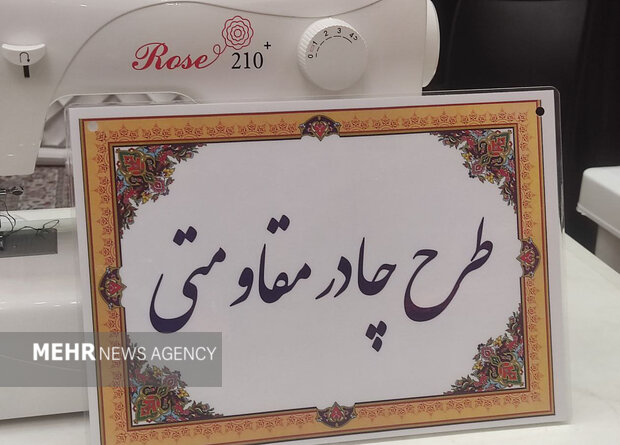 Rose 210+
0 1 2 3 4
طرح چادر مقاومتی
MEHR NEWS AGENCY